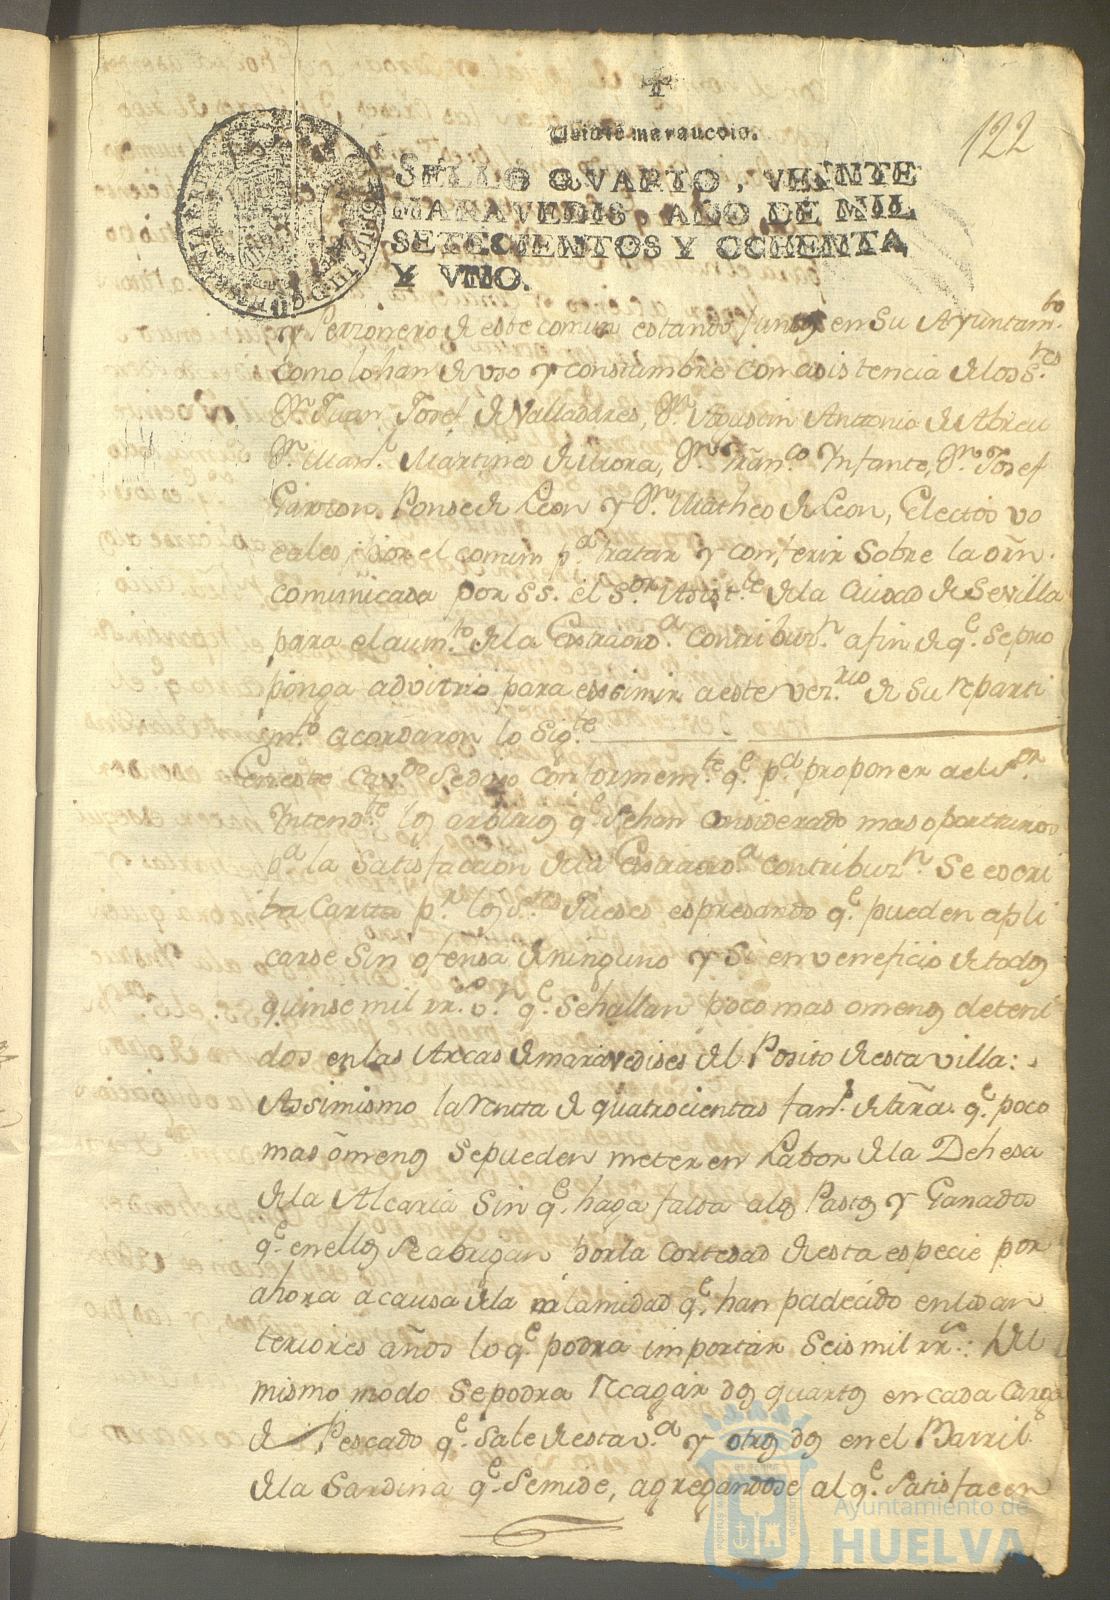 122
Veinte maravedis.
SELLO QVARTO, VEINTE
MARAVEDIS, AÑO DE MIL
SETECIENTOS Y OCHENTA
Y VNO.
y Perzonero de este comun estando juntos en Su Ayuntam.to
como lo han de uso y constumbre con asistencia de los S.res
Dn. Juan Josef de Valladares, Dn. Agustin Antonio de Abreu
Dn. Man.l Martines de Mora, Dn. Fran.co Ynfante, Dn. Josef
Garzon Ponse de Leon y Dn. Matheo de Leon, Electos vo
cales por el comun p.a tratar y conferir sobre la orñ.
comunicada por S.S. el S.or Asist.te de la Ciudad de Sevilla
para el aum.to de la Estraord.a Contribuz.n a fin de q.e Se pro
ponga advitrio para essimir a este vez.rio de Su reparti
m.to acordaron lo Sig.te
En este Cav.do Se dijo conformem.te q.e p.a proponer a el S.or
Yntend.te los arbitrios q.e Se han considerado mas oportunos
p.a la Satisfaccion de la Estraord.a contribuz.n Se escri
ba Carta p.r los S.res Jueses espresando q.e pueden apli
carse Sin ofensa de ninguno y Si en veneficio de todos
quinse mil rr.s v.n q.e Se hallan poco mas o menos deteni
dos en las Arcas de maravedises del Posito de esta villa:
Assimismo la Rentta de quatrocientas fan.s de tñra. q.e poco
mas o menos Se pueden meter en Labor de la Dehesa
de la Alcaria Sin q.e haga falta a los Pastos y Ganados
q.e en ellos Se abrigan por la cortedad de esta especie por
ahora a causa de la calamidad q.e han padecido en los an
teriores años lo q.e podra importar Seis mil rr.s: Del
mismo modo Se podra Recagar dos quartos en cada Carga
de Pescado q.e Sale de esta v.a y otros dos en el Barril
de la Sardina q.e Se mide, agregandose al q.e Satisfacen
Ayuntamiento de
HUELVA